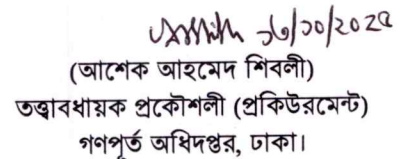 ১৬/১০/২০২৫
(আশেক আহমেদ শিবলী)
তত্ত্বাবধায়ক প্রকৌশলী (প্রকিউরমেন্ট)
গণপূর্ত অধিদপ্তর, ঢাকা।